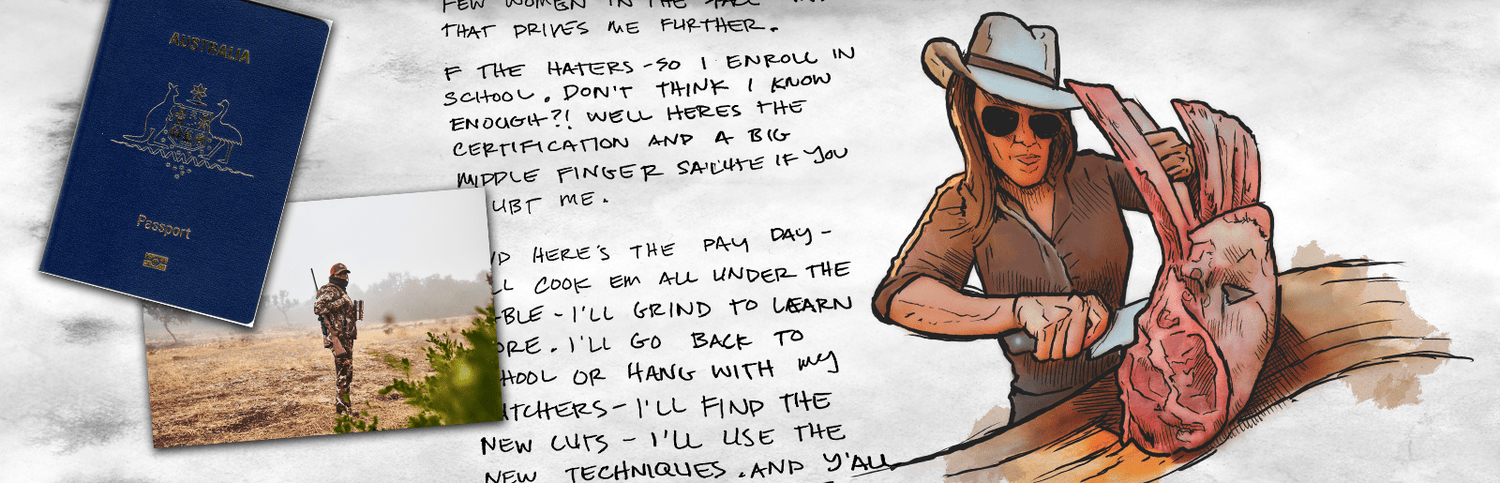 AUSTRALIA
Passport
FEW WOMEN IN THE
THAT DRIVES ME FURTHER.
F THE HATERS - SO I ENROLL IN
SCHOOL. DON'T THINK I KNOW
ENOUGH?! WELL HERES THE
CERTIFICATION AND A BIG
MIDDLE FINGER SALUTE IF YOU
UBT ME.
ND HERE'S THE PAY DAY -
LL COOK EM ALL UNDER THE
BLE - I'LL GRIND TO LEARN
ORE. I'LL GO BACK TO
HOOL OR HANG WITH MY
UTCHERS - I'LL FIND THE
NEW CUTS - I'LL USE THE
NEW TECHNIQUES. AND Y'ALL